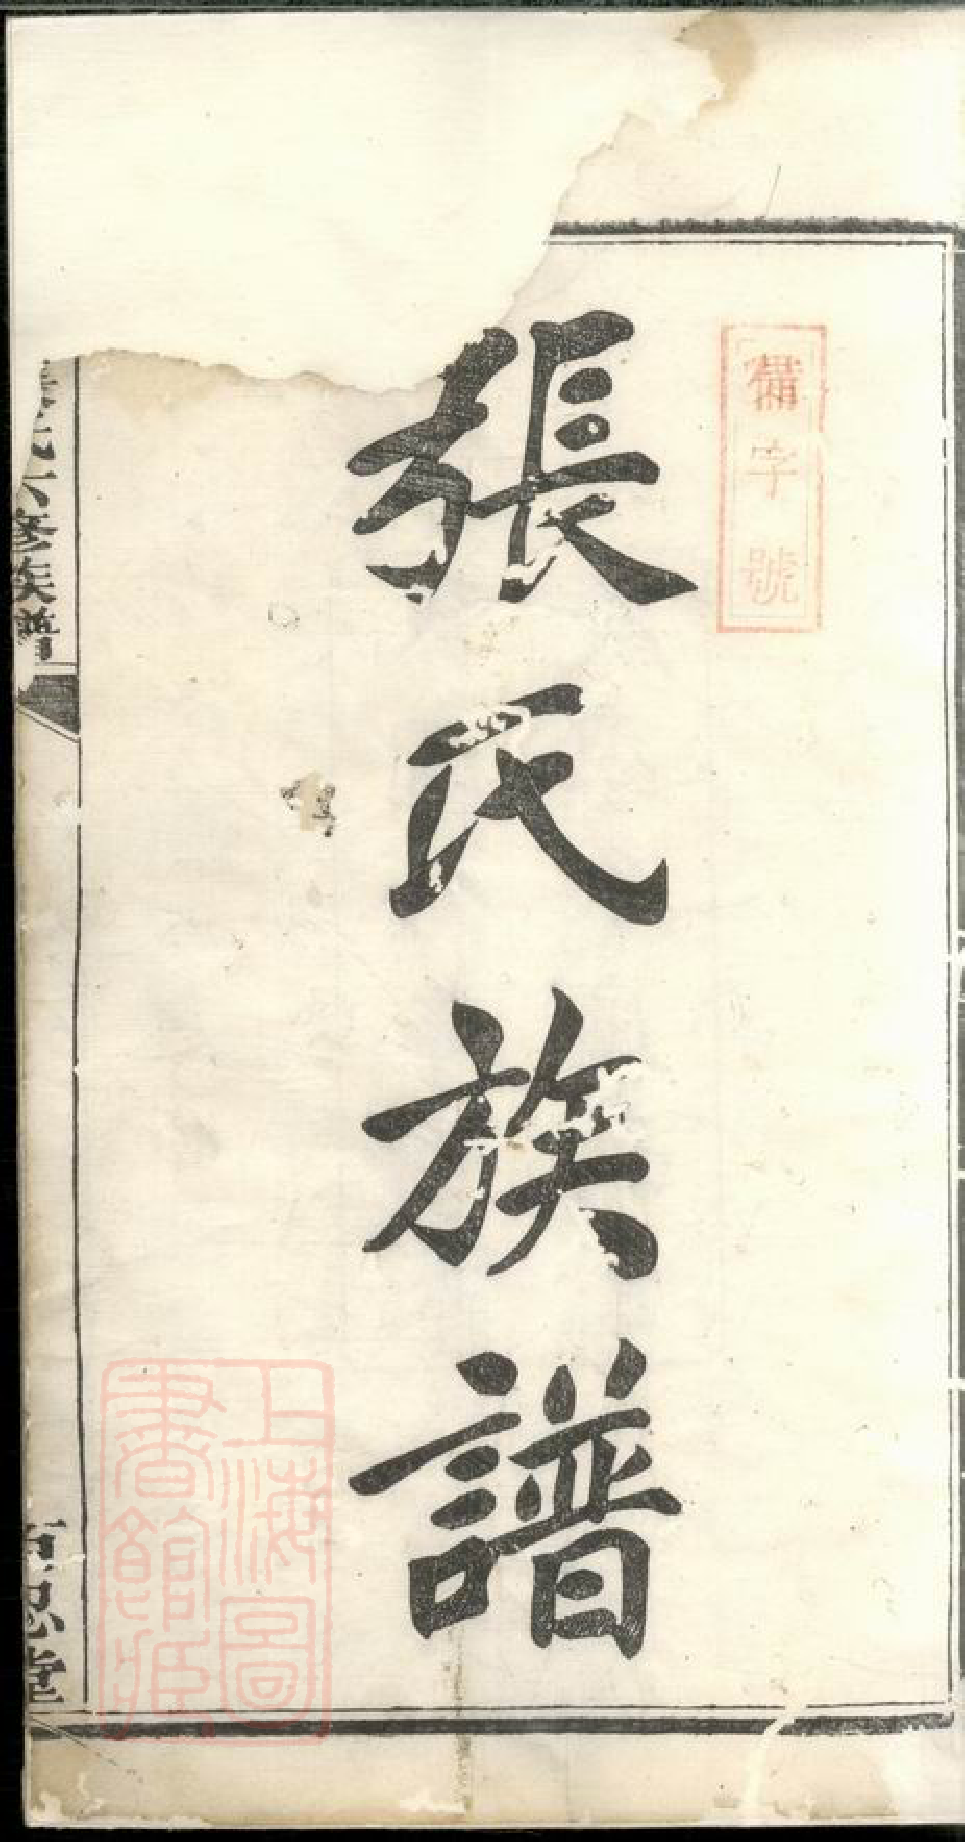 備字號
張氏族譜
上海圖
書館藏
修族譜
思堂